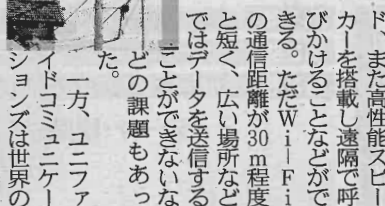 ド、また高性能スピー
カーを搭載し遠隔で呼
びかけることなどがで
きる。ただＷｉ－Ｆｉ
の通信距離が30ｍ程度
と短く、広い場所など
ではデータを送信する
ことができないな
どの課題もあっ
た。
一方、ユニファ
イドコミュニケー
ションズは世界の